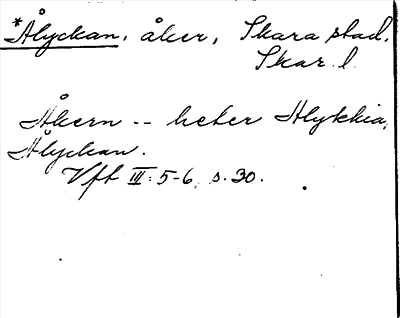 *Ålyckan, åker, Skara stad,
Skar. l.
Åkern -- heter Alykkia,
Ålyckan.
Vft III: 5-6, s. 30.